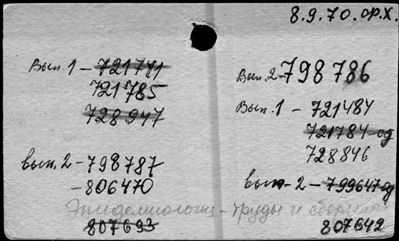 8.9.70. ор.х.
Вып. 1 - 721771
721785
728947
вып. 2 - 798787
- 806470
807693
Вып. 2 - 798786
Вып. 1 - 721484
721784-од
728846
вып - 2 - 799647 од
Эпидемиология - труды и сборники
807642